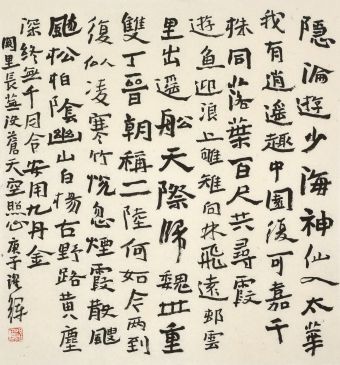 隱淪遊少海神仙入太華
我有逍遙趣中園復可嘉千
株同落葉百尺共尋霞
遊魚迎浪上雊雉向林飛遠邨雲
里出遥船天際歸魏世重
雙丁晉朝稱二陸何如今兩到
復似凌寒竹怳忽煙霞散颼
飀松柏陰幽山白楊古野路黃塵
深終無千月命安用九丹金
闕里長蕪没蒼天空照心庚子